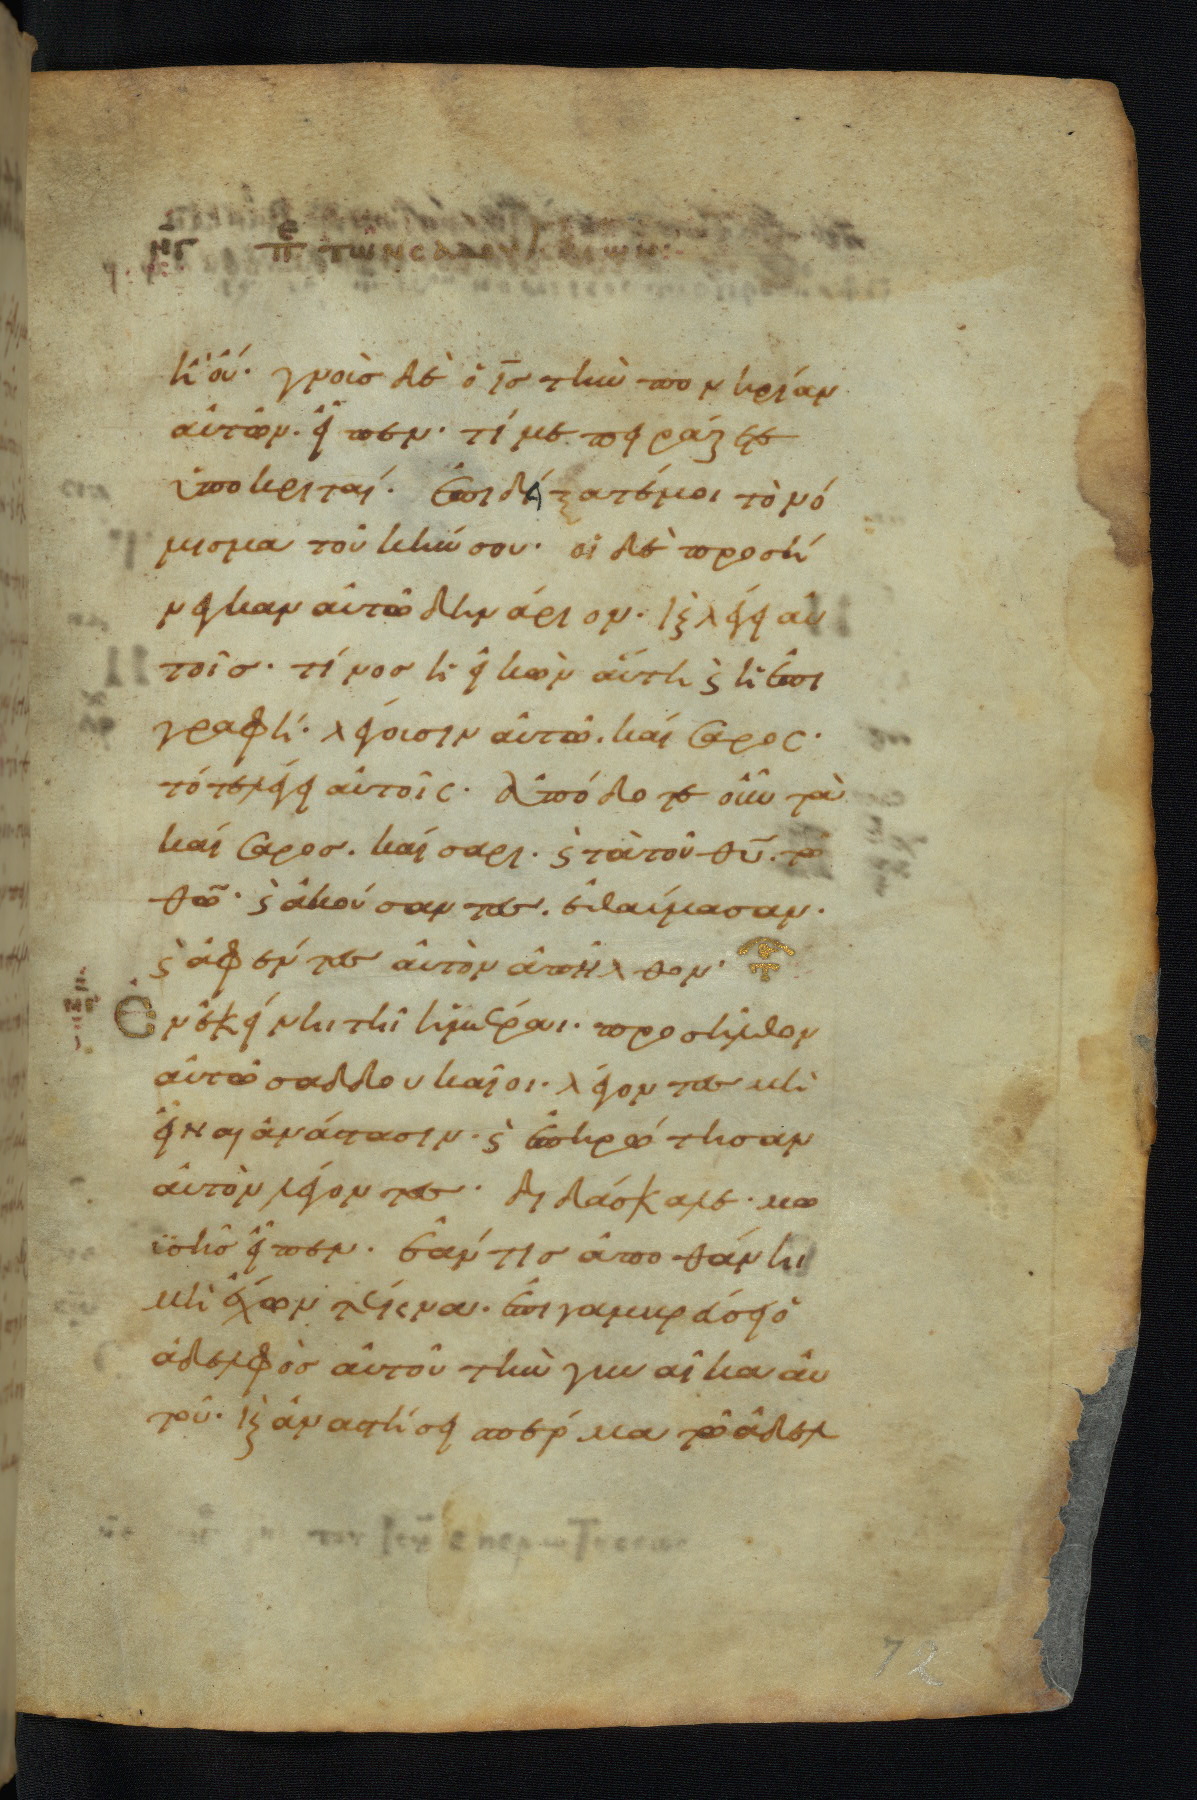 ΝΓ Πε τῶν σαδδουκαίων:
ἢ οὔ· γνοὺσ δὲ ὁ ισ τὴν πονηρίαν
αὐτῶν· εἶπεν· τί με πειράζετε
ὑποκριταί· ἐπιδείξατέ μοι τὸ νό
μισμα τοῦ κήνσου· οἱ δὲ προσή
νεγκαν αὐτῶ δηνάριον· κ λέγει αὐ
τοῖσ· τίνοσ ἡ εἰκὼν αὕτη κ ἡ ἐπι
γραφή· λέγουσιν αὐτῶ· καίσαρος·
τότε λέγει αὐτοῖς· ἀπόδοτε οὖν τὰ
καίσαροσ· καίσαρι· κ τὰ τοῦ θυ· τῶ
θω· κ ἀκούσαντεσ· ἐθαύμασαν·
κ ἀφέντεσ αὐτὸν ἀπῆλθον·
Ἐν ἐκείνηι τῆι ἡμέραι· προσῆλθον
αὐτῶ σαδδουκαῖοι· λέγοντεσ μὴ
εἶναι ἀνάστασιν· κ ἐπηρώτησαν
αὐτὸν λέγοντεσ· διδάσκαλε· μω
ϋσῆσ εἶπεν· ἐάν τισ ἀποθάνηι
μὴ ἔχων τέκνα· ἐπιγαμβρεύσει ὁ
ἀδελφὸσ αὐτοῦ τὴν γυναῖκα αὐ
τοῦ· κ ἀναστήσει σπέρμα τῶ ἀδελ
72